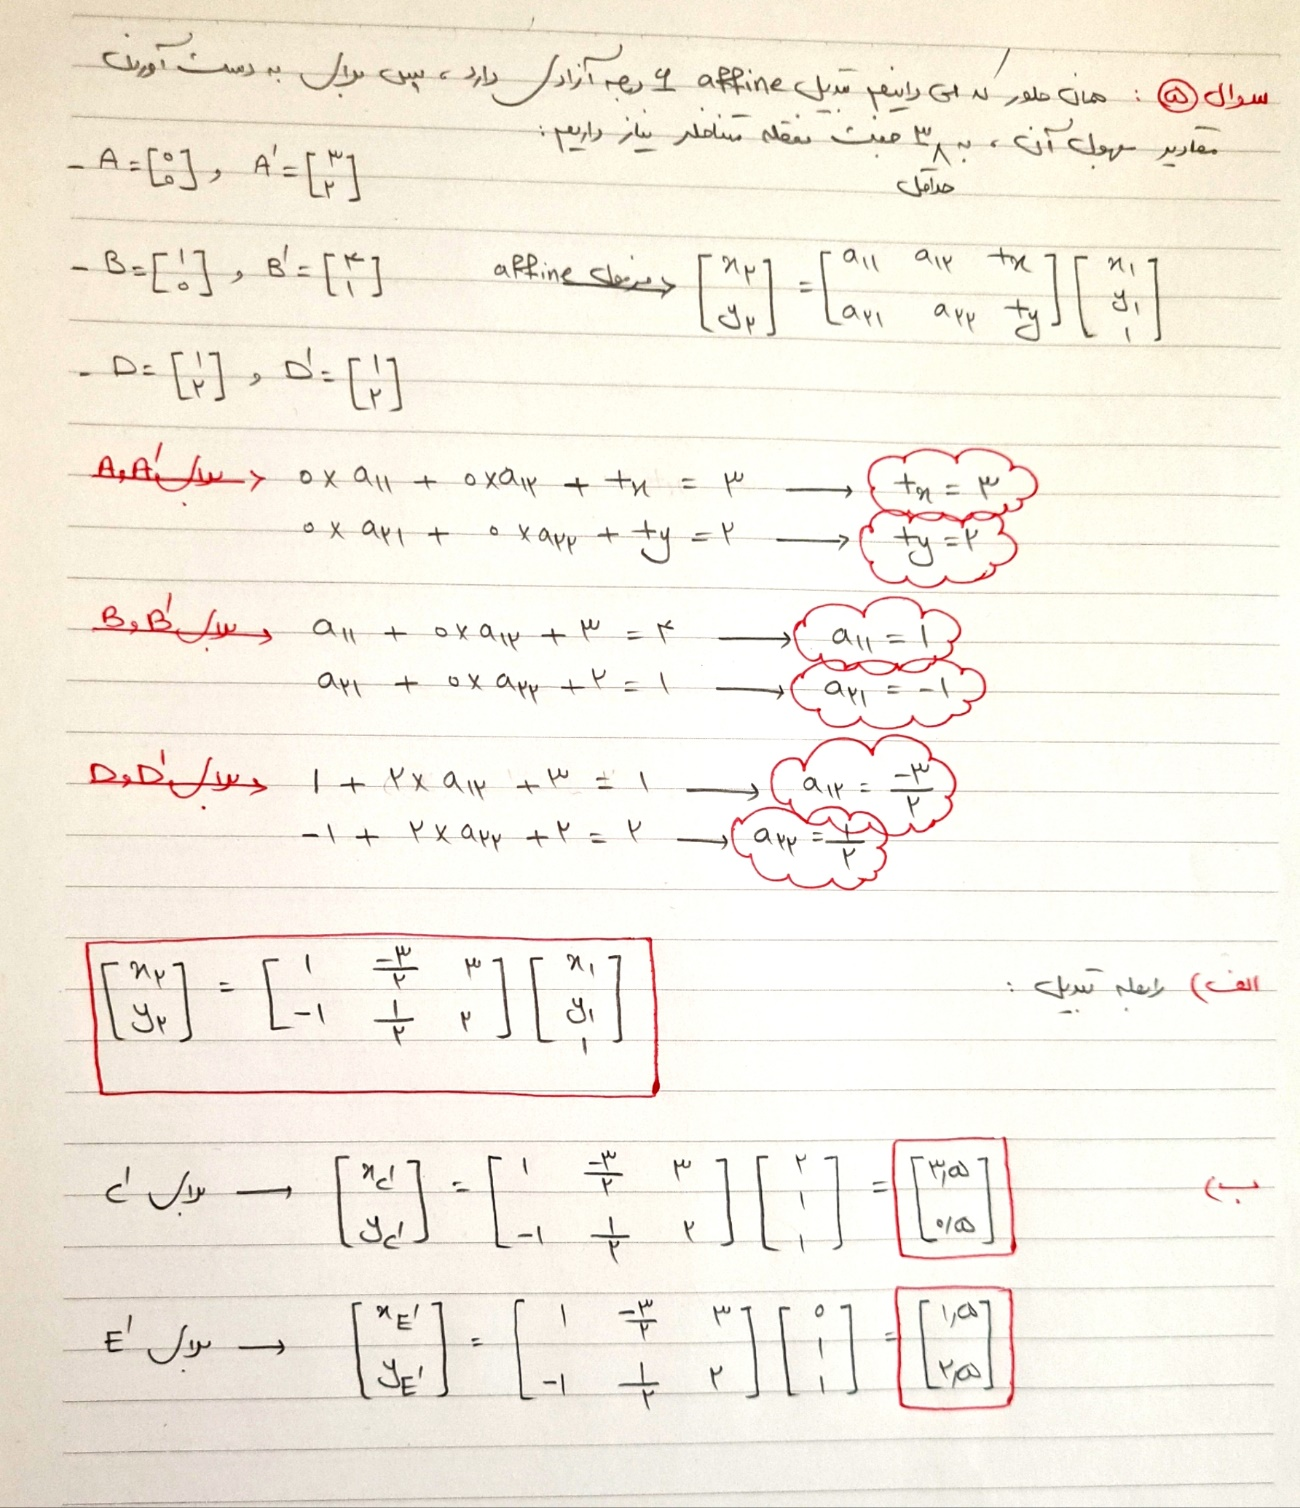 سوال ۵ : همان طور که می دانیم تبدیل affine ۶ درجه آزادی دارد ، پس برای به دست آوردن
مقادیر مجهول آن ، به حداقل ۳ جفت نقطه متناظر نیاز داریم :
- A = [۰ ۰] , A' = [۳ ۲]
- B = [۱ ۰] , B' = [۴ ۱]
affine → [x۲ y۲] = [a۱۱ a۱۲ tx a۲۱ a۲۲ ty] [x۱ y۱ ۱]
- D = [۱ ۲] , D' = [۱ ۲]
برای A, A' → ۰ × a۱۱ + ۰ × a۱۲ + tx = ۳ → tx = ۳
۰ × a۲۱ + ۰ × a۲۲ + ty = ۲ → ty = ۲
برای B, B' → a۱۱ + ۰ × a۱۲ + ۳ = ۴ → a۱۱ = ۱
a۲۱ + ۰ × a۲۲ + ۲ = ۱ → a۲۱ = -۱
برای D, D' → ۱ + ۲ × a۱۲ + ۳ = ۱ → a۱۲ = -۳/۲
-۱ + ۲ × a۲۲ + ۲ = ۲ → a۲۲ = ۱/۲
الف) رابطه تبدیل :
[x۲ y۲] = [۱ -۳/۲ ۳ -۱ ۱/۲ ۲] [x۱ y۱ ۱]
ب)
برای C' → [xC' yC'] = [۱ -۳/۲ ۳ -۱ ۱/۲ ۲] [۲ ۱ ۱] = [۳,۵ ۰,۵]
برای E' → [xE' yE'] = [۱ -۳/۲ ۳ -۱ ۱/۲ ۲] [۰ ۱ ۱] = [۱,۵ ۲,۵]